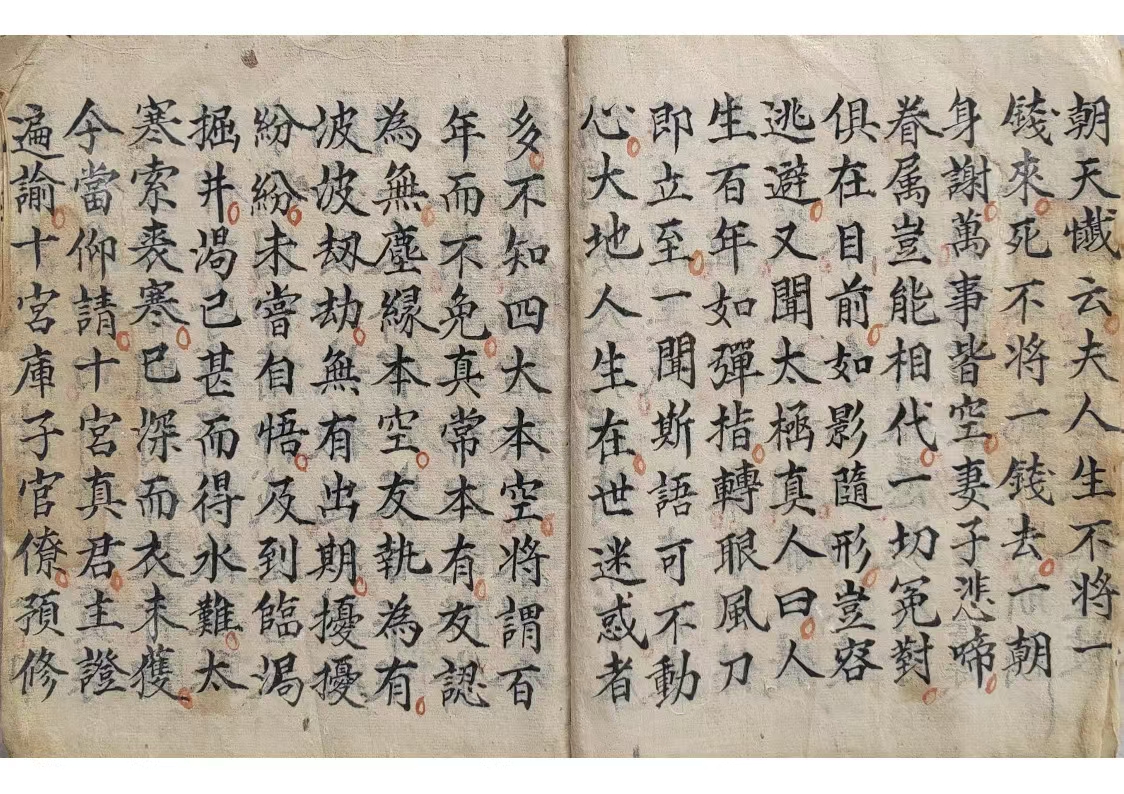 朝天懺云夫人生不將一
錢來死不將一錢去一朝
身謝萬事皆空妻子悲啼
眷属豈能相代一切冤對
俱在目前如影隨形豈容
逃避又聞太極真人曰人
生百年如彈指轉眼風刀
即立至一聞斯語可不動
心大地人生在世迷惑者
多不知四大本空將謂百
年而不免真常本有友認
為無塵緣本空友執為有
波波劫劫無有出期擾擾
紛紛未嘗自悟及到臨渴
掘井渴已甚而得水難太
寒索裘寒已深而衣未獲
今當仰請十宮真君主證
遍諭十宮庫子官僚預修